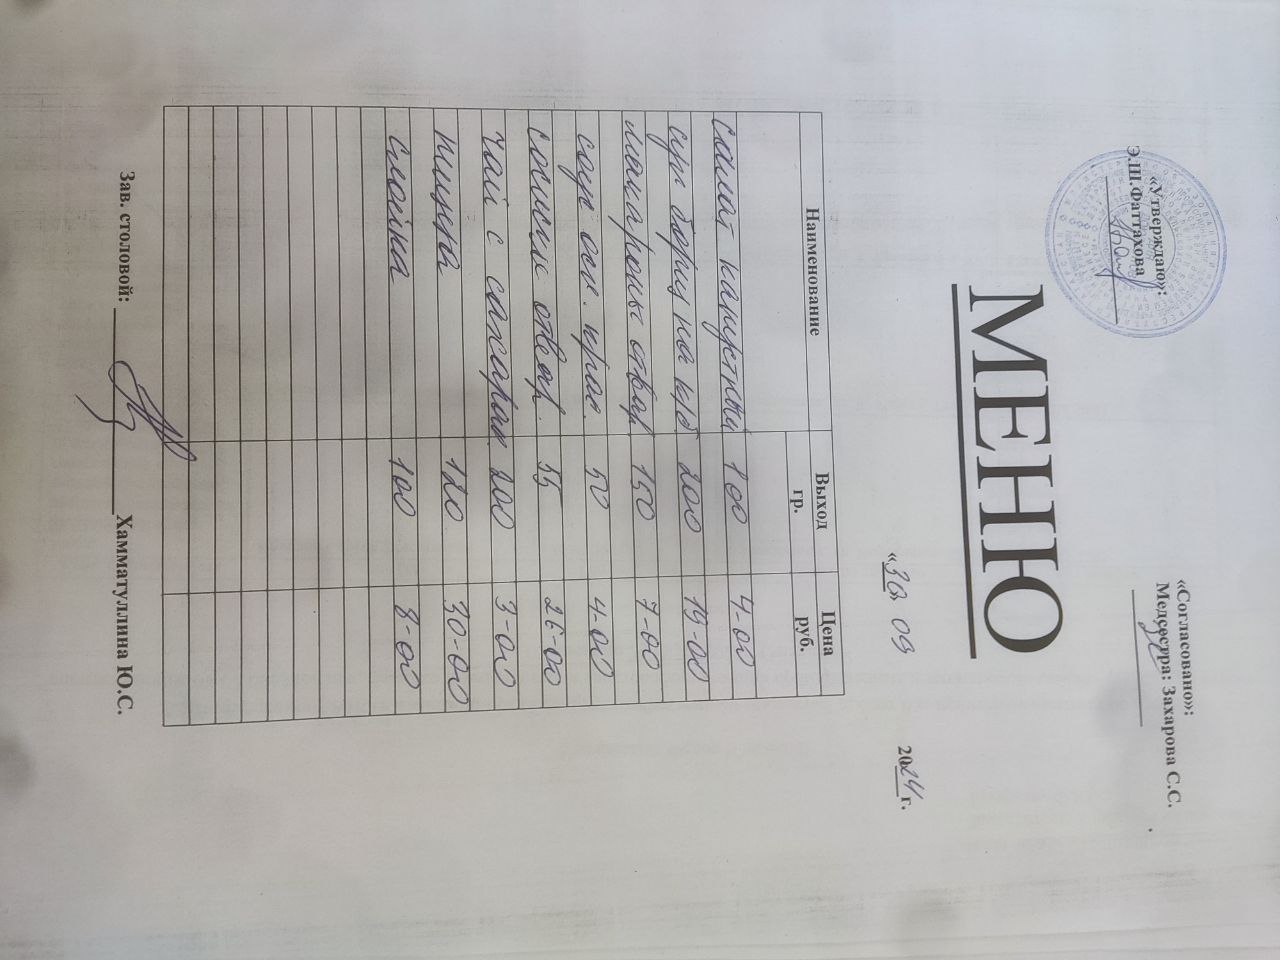 «Утверждаю»:
Э.Ш.Фаттахова
«Согласовано»:
Медсестра: Захарова С.С.
МЕНЮ
«30» 09 2024 г.
Наименование Выход гр. Цена руб.
салат капустный 100 4-00
суп борщ на к/б 200 19-00
макароны отвар 150 7-00
соус осн. крас. 50 4-00
сосиски отвар. 55 26-00
чай с сахаром 200 3-00
пицца 120 30-00
слойка 100 8-00
Зав. столовой: Хамматуллина Ю.С.